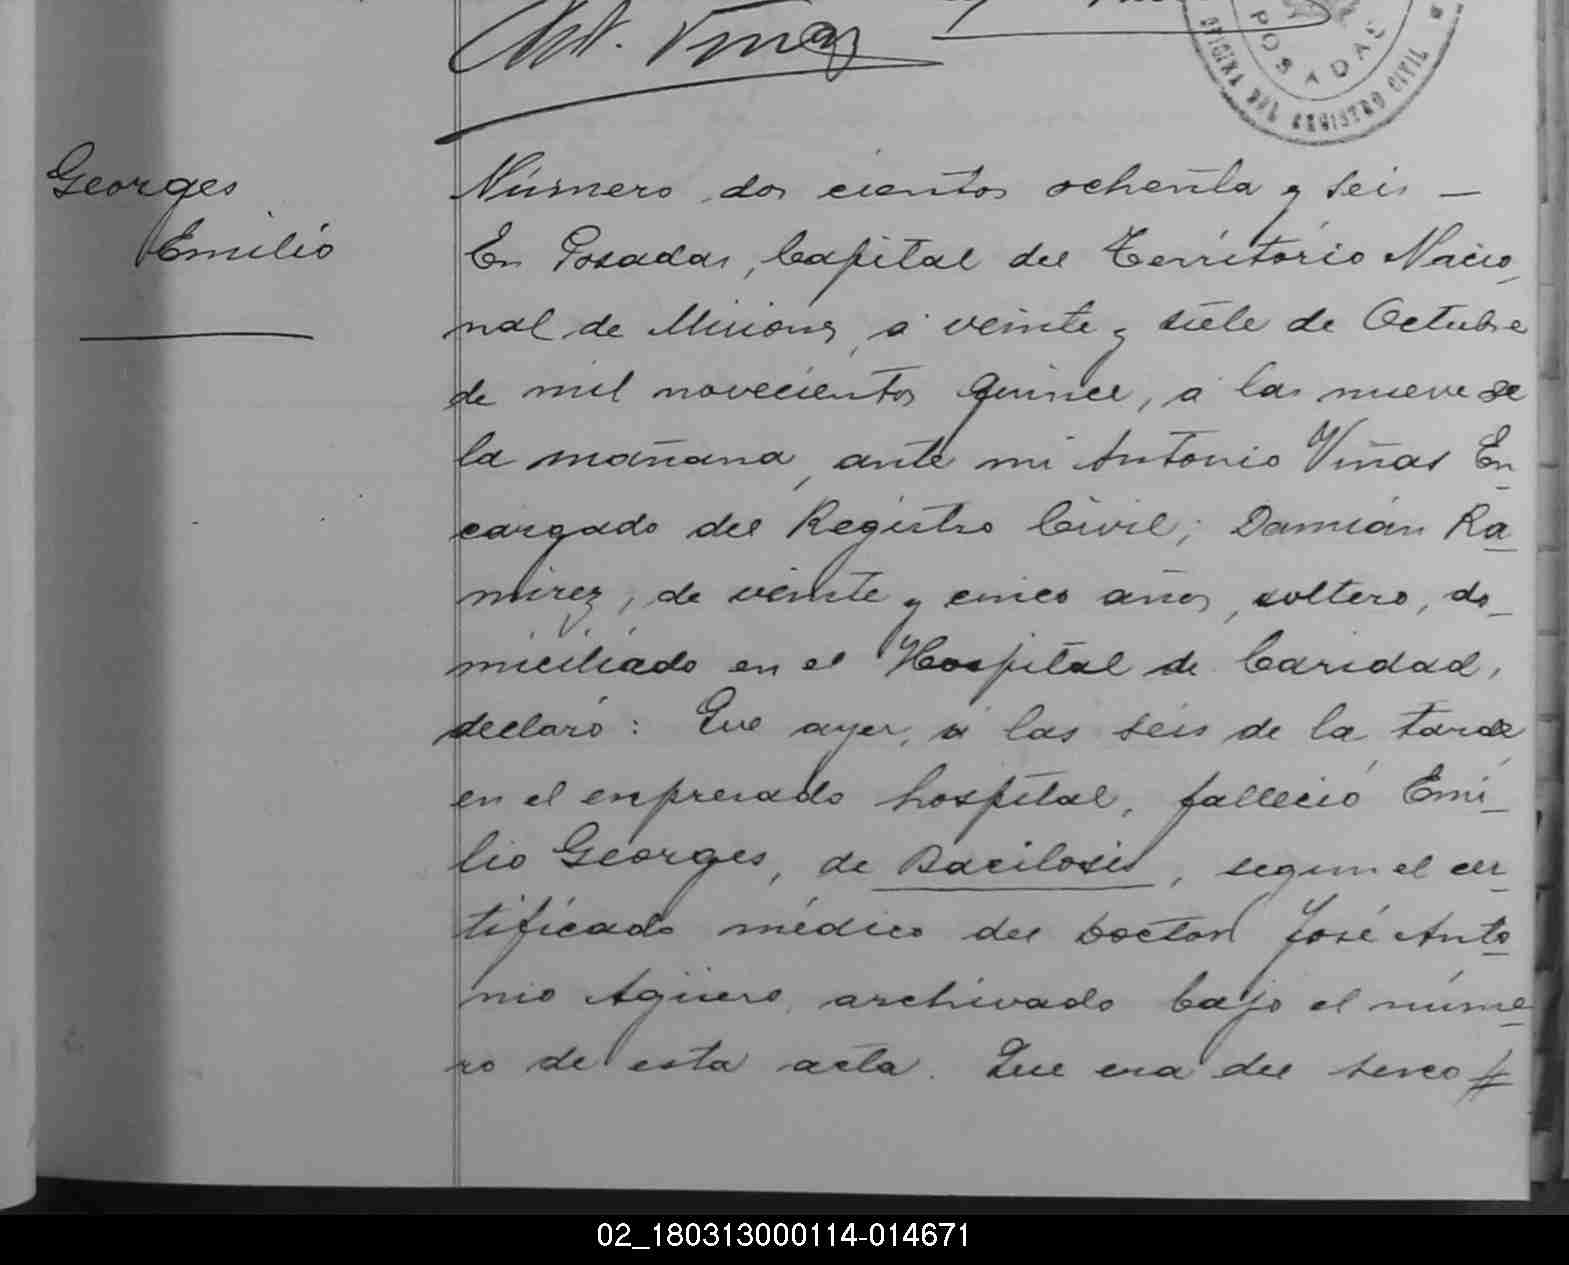 Ant. Viñas
POSADAS
OFICINA DEL REGISTRO CIVIL
Georges
Emilio
Número dos cientos ochenta y seis —
En Posadas, Capital del Territorio Nacio
nal de Misiones, a veinte y siete de Octubre
de mil novecientos quince, a las nueve de
la mañana, ante mi Antonio Viñas En
cargado del Registro Civil; Damián Ra
mirez, de veinte y cinco años, soltero, do
miciliado en el Hospital de Caridad,
declaró: Que ayer, a las seis de la tarde,
en el expresado hospital, falleció Emi
lio Georges, de Bacilosis, segun el cer
tificado médico del Doctor José Anto
nio Agüero, archivado bajo el núme
ro de esta acta. Que era del sexo #
02_180313000114-014671